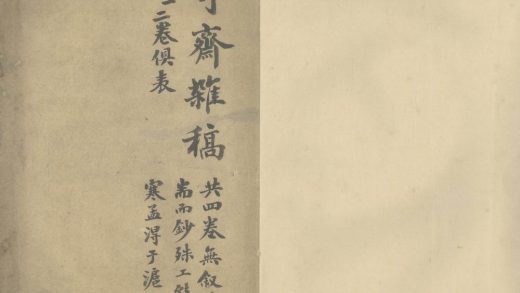 齋雜稿
二卷俱表
共四卷無叙
耑而鈔殊工
寒孟得于滬